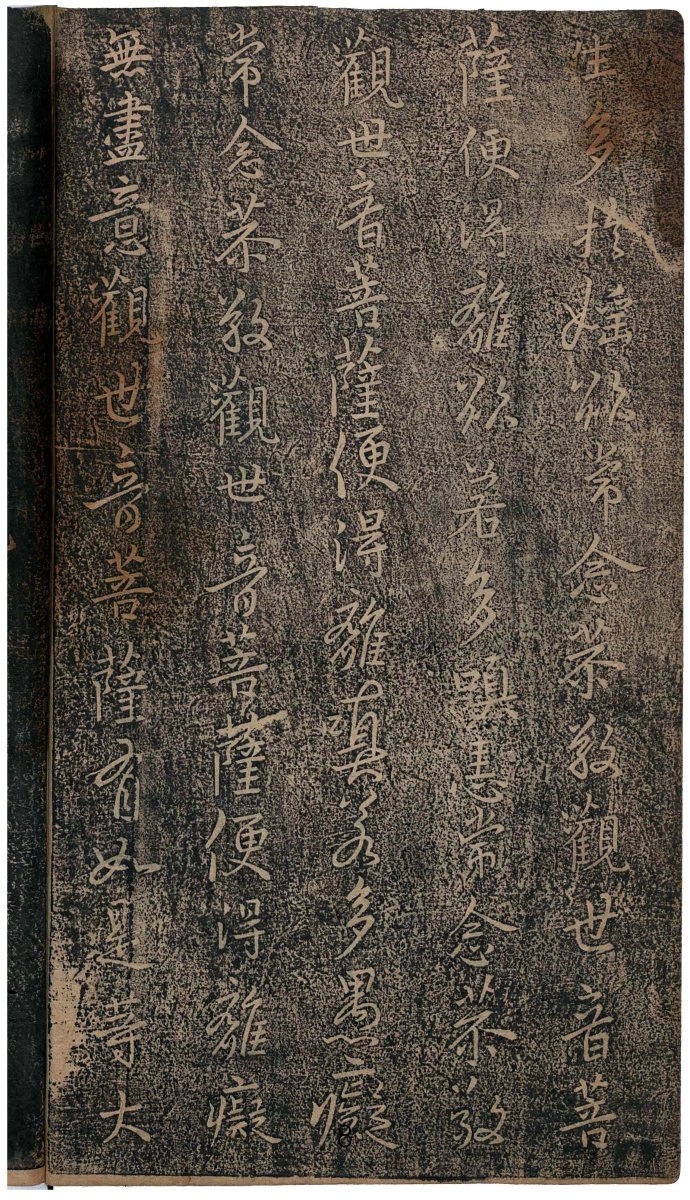 生多於婬欲常念恭敬觀世音菩
薩便得離欲若多瞋恚常念恭敬
觀世音菩薩便得離瞋若多愚癡
常念恭敬觀世音菩薩便得離癡
無盡意觀世音菩薩有如是等大
8